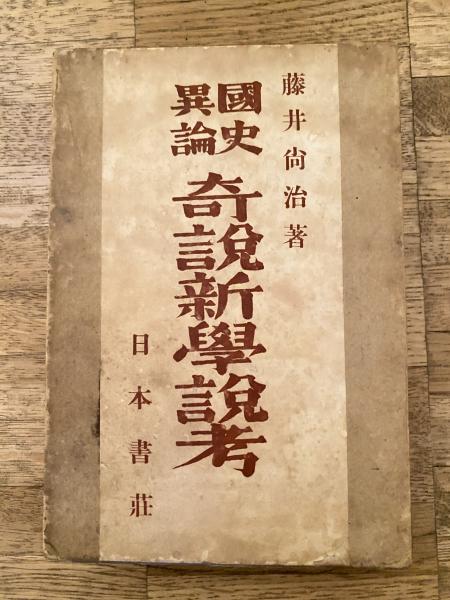 藤井尙治著
國史
異論
奇說新學說考
日本書莊